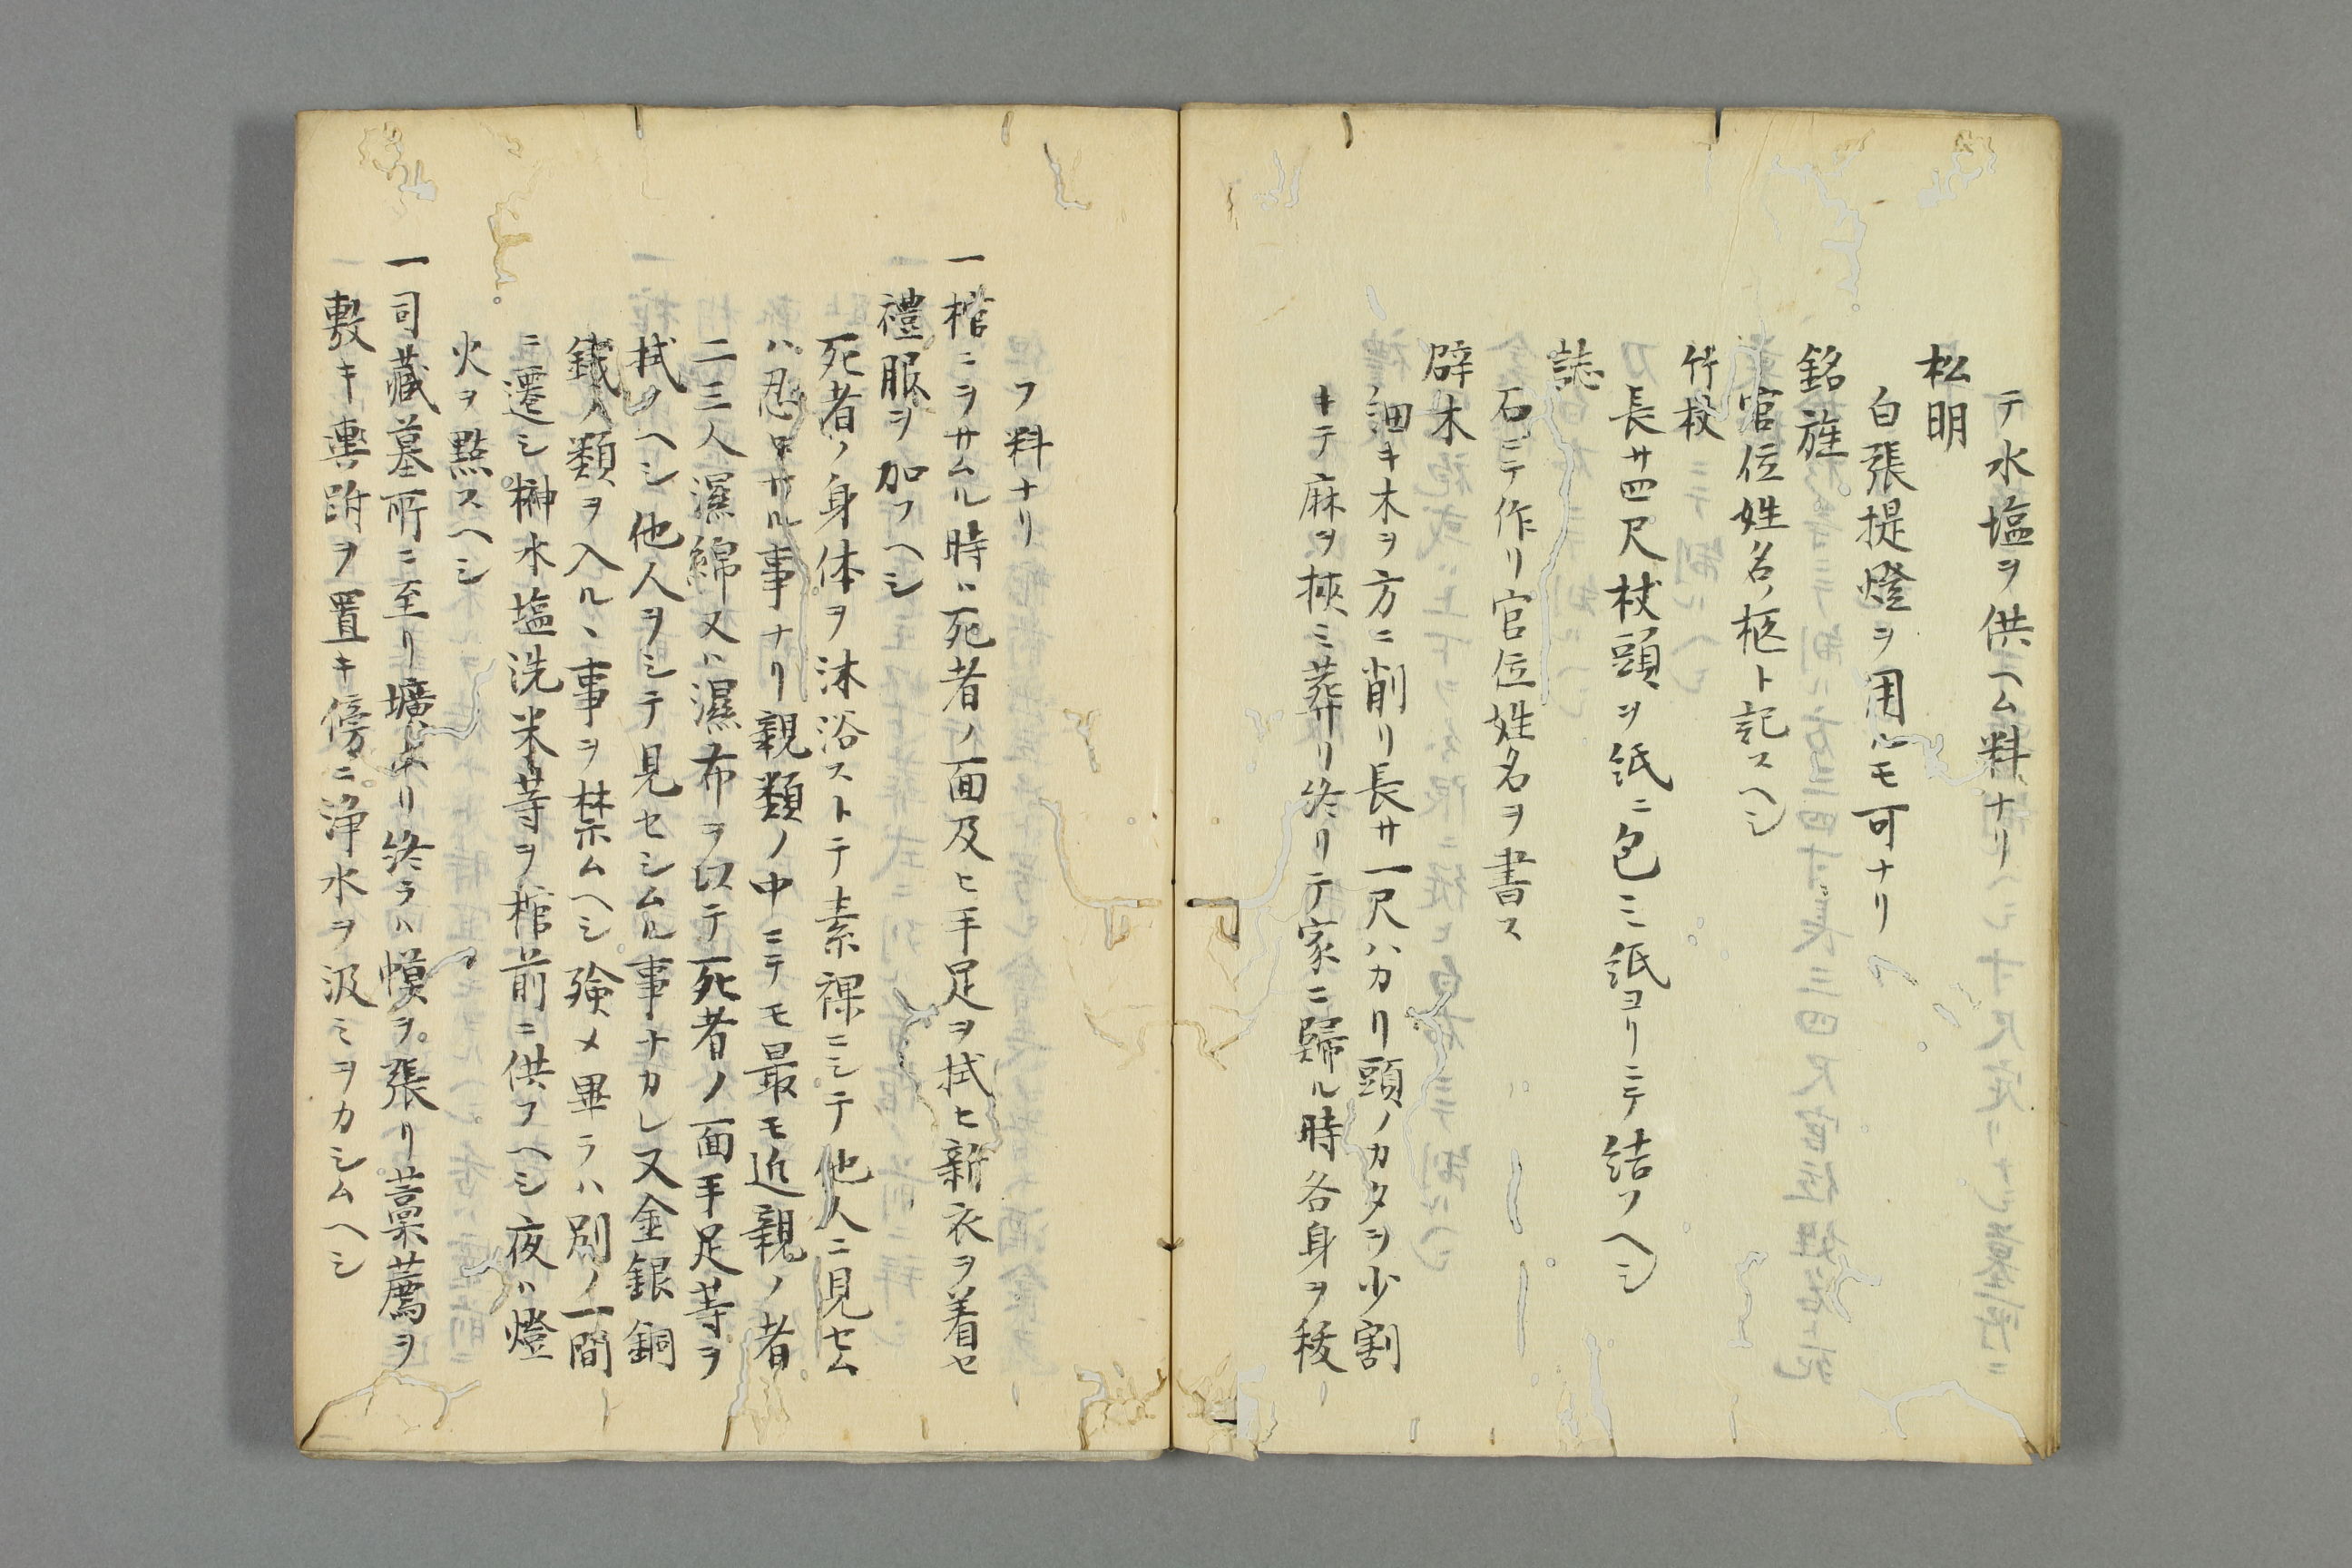 テ水塩ヲ供ヘム料ナリ
松明
白張提燈ヲ用ルモ可ナリ
銘旌
官位姓名ノ柩ト記スヘシ
竹杖
長サ四尺杖頭ヲ紙ニ包ミ紙ヨリニテ結フヘシ
誌
石ニテ作リ官位姓名ヲ書ス
辟木
細キ木ヲ方ニ削リ長サ一尺ハカリ頭ノカタヲ少割
キテ麻ヲ挾ミ葬リ終リテ家ニ歸ル時各身ヲ祓
フ料ナリ
一棺ニヲサムル時ハ死者ノ面及ヒ手足ヲ拭ヒ新衣ヲ着セ
禮服ヲ加フヘシ
死者ノ身体ヲ沐浴ストテ素裸ニシテ他人ニ見セム
ハ忍ヒサル事ナリ親類ノ中ニテモ最モ近親ノ者
二三人濕綿又ハ濕布ヲ以テ死者ノ面手足等ヲ
拭フヘシ他人ヲシテ見セシムル事ナカレ又金銀銅
鐵ノ類ヲ入ルヽ事ヲ禁ムヘシ殮メ畢ラハ別ノ一間
ニ遷シ榊水塩洗米等ヲ棺前ニ供フヘシ夜ハ燈
火ヲ點スヘシ
一司藏墓所ニ至リ壙ヲホリ終ラハ幄ヲ張リ藁薦ヲ
敷キ輿跗ヲ置キ傍ニ浄水ヲ汲ミヲカシムヘシ